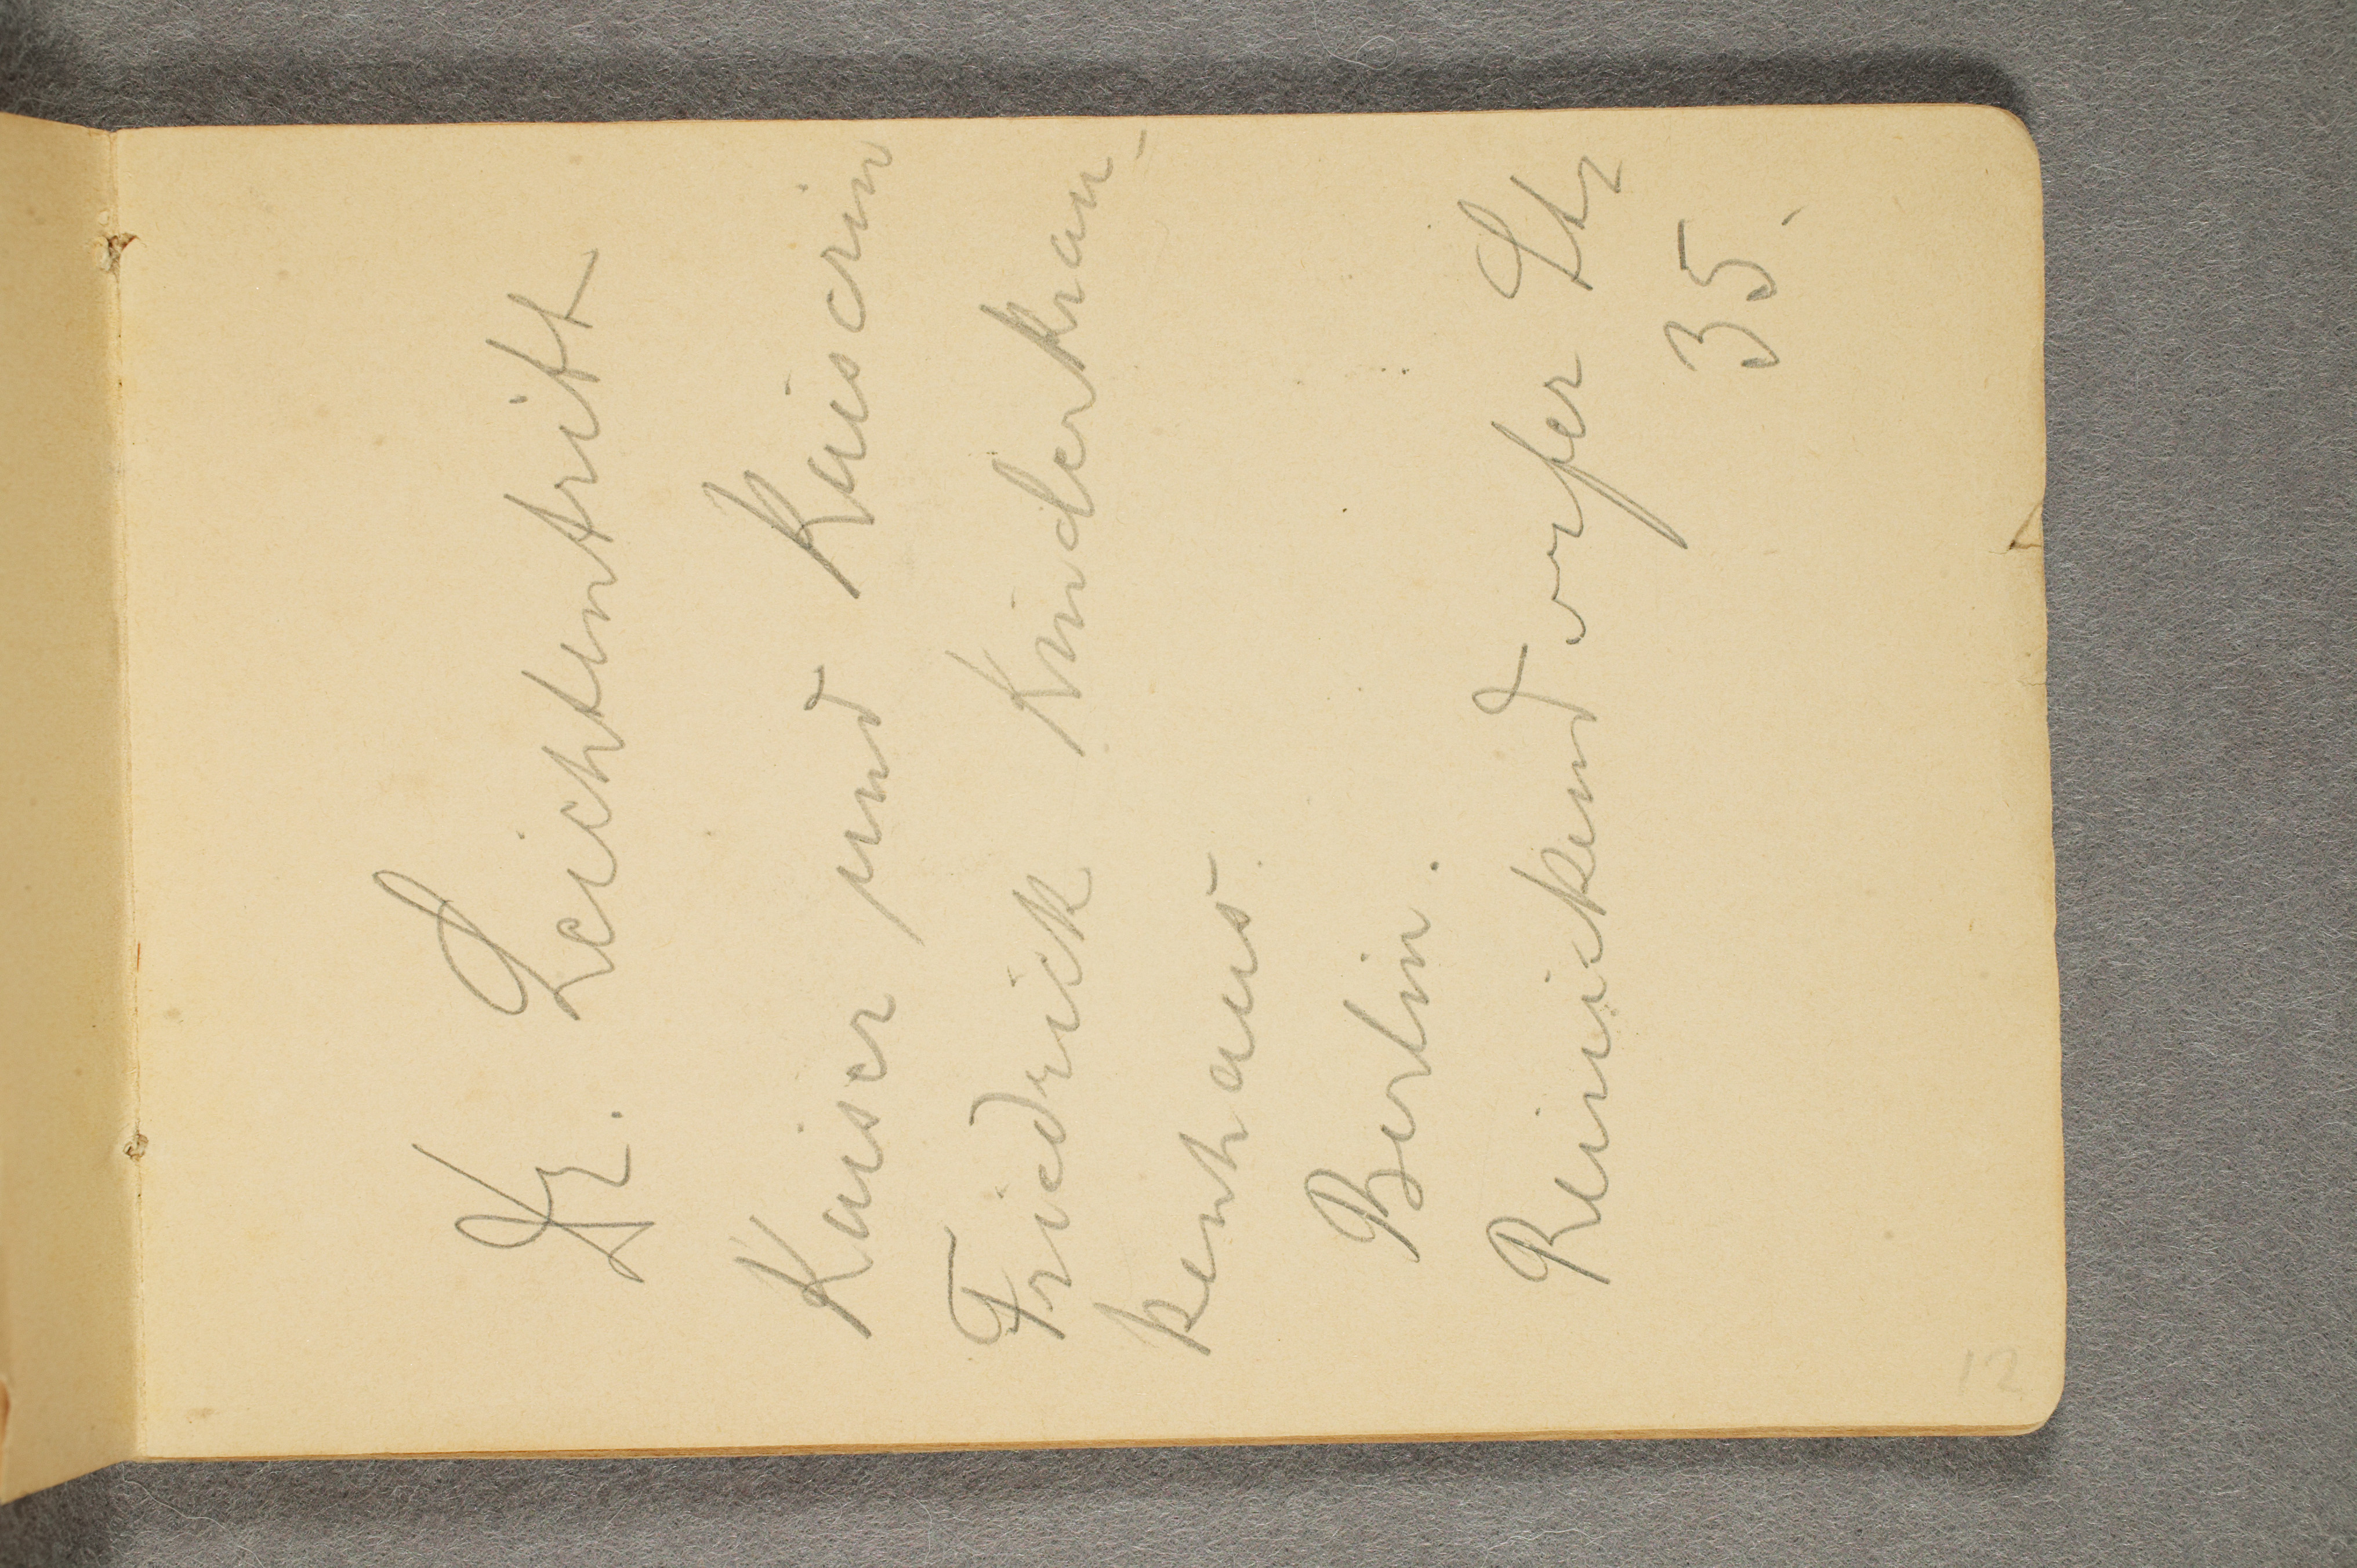 Dr. Leichtentritt
Kaiser und Kaiserin
Friedrick Kinderkran-
kenhaus
Berlin.
Reinickendorfer Str
35.
12